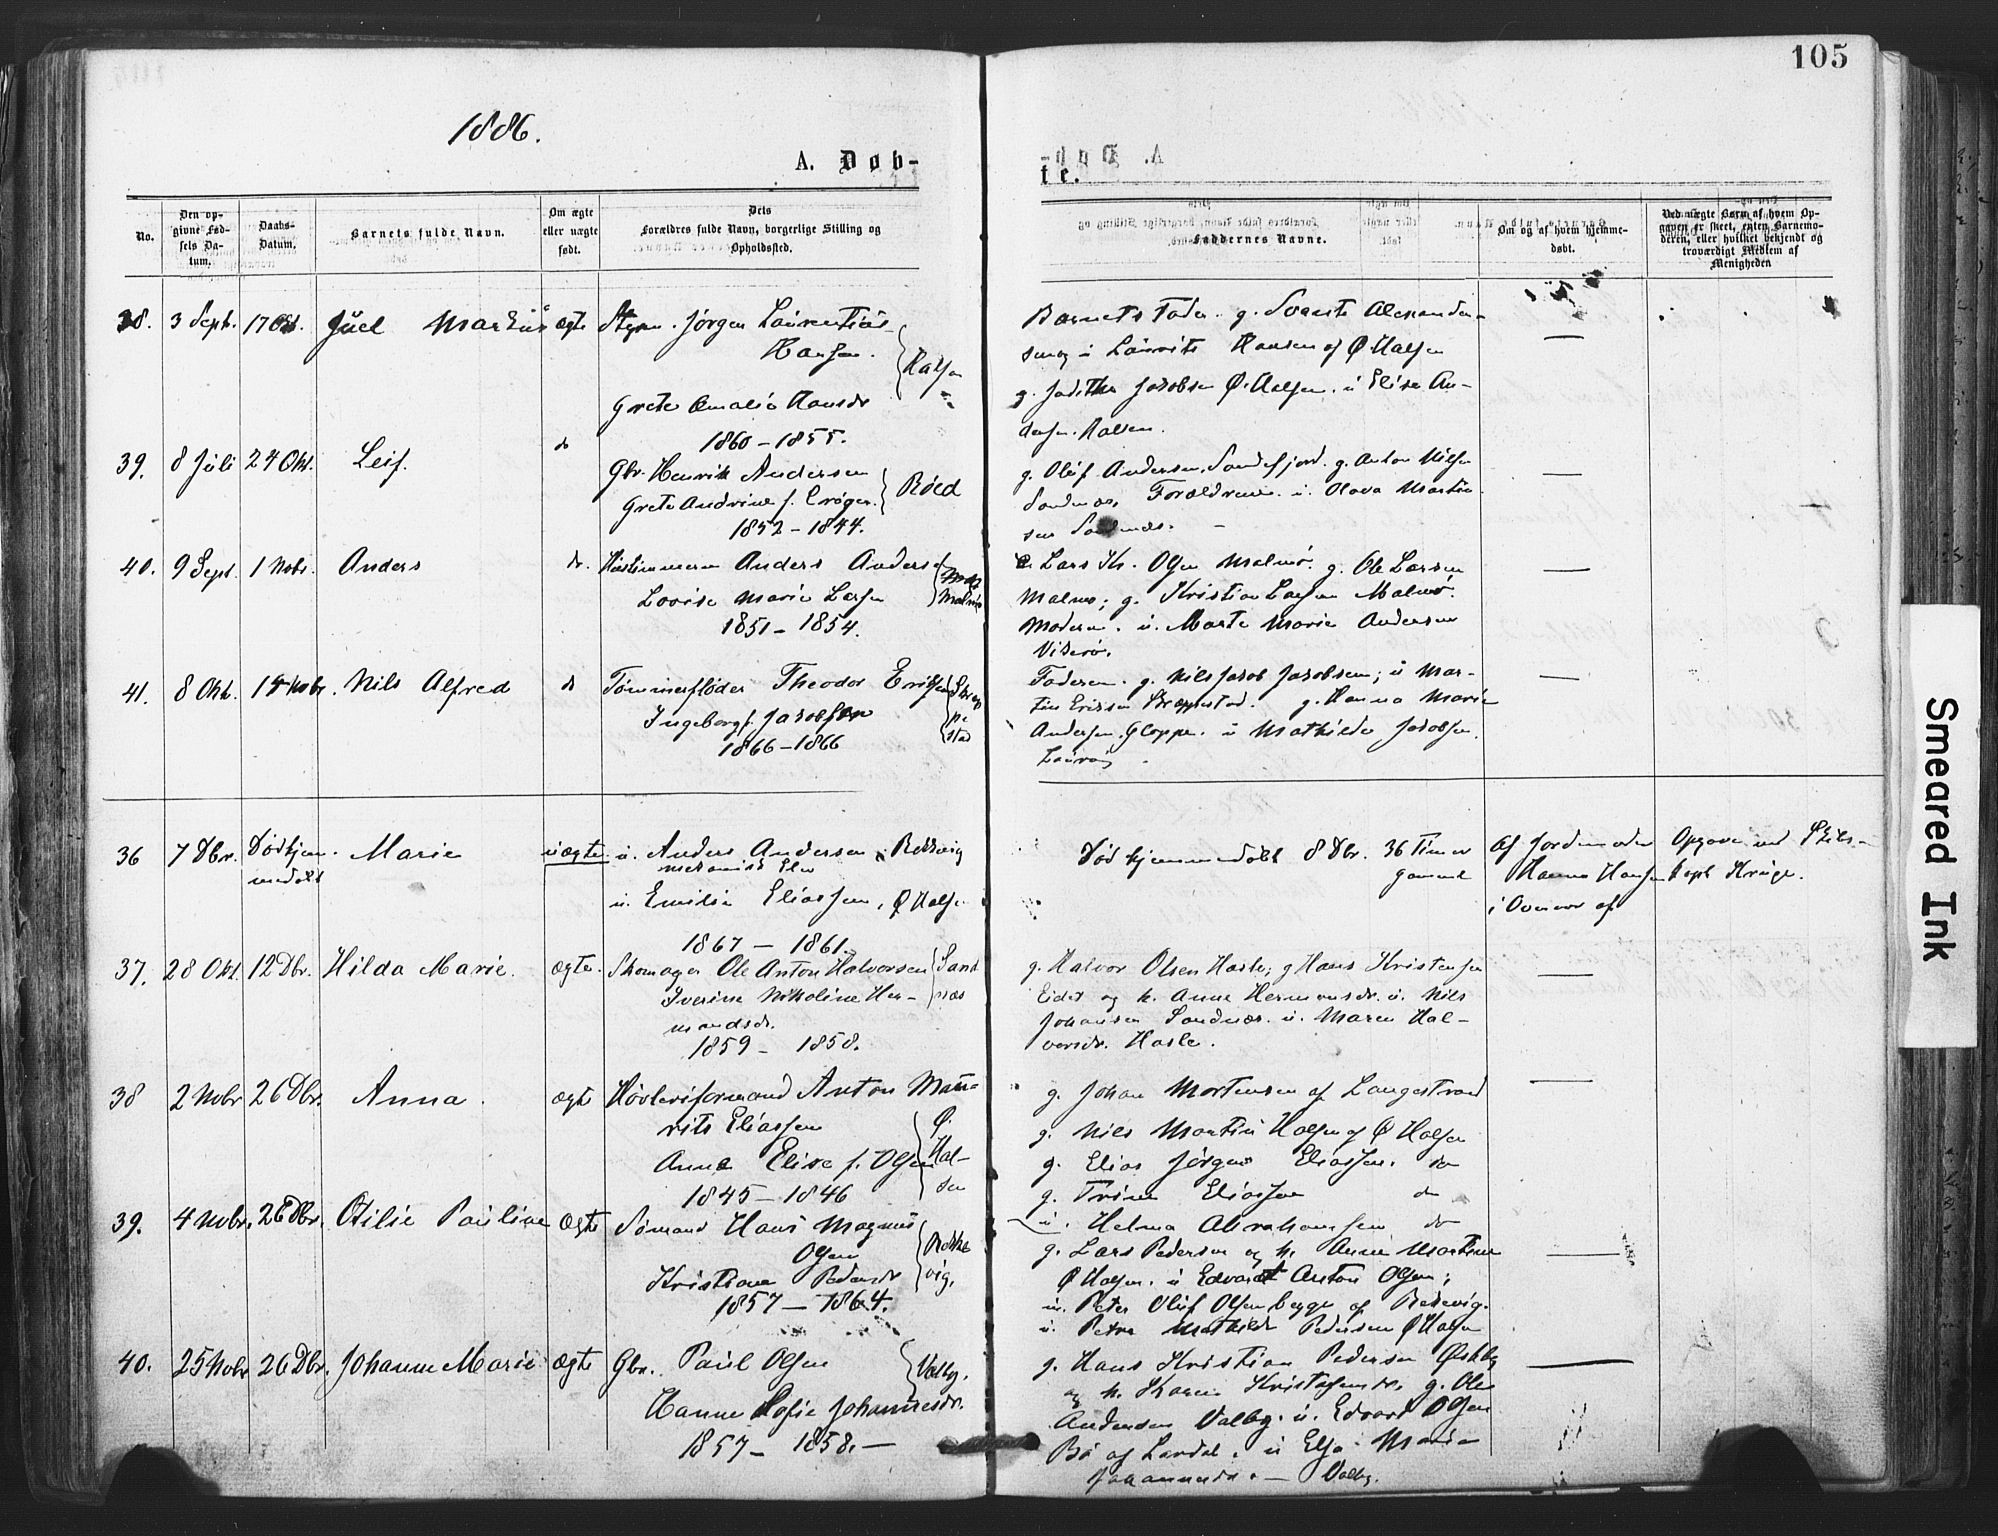 105
1886.
A. Døb-
te.
No.
Den op-
givne Fød-
sels Da-
tum.
Daabs-
Datum.
Barnets fulde Navn.
Om ægte
eller uægte
født.
Dets
Forældres fulde Navn, borgerlige Stilling og
Opholdssted.
Faddernes Navne.
Om og af hvem hjemme-
døbt.
Ved uægte Barn af hvem Op-
gaven er skeet, enten Barnemo-
deren, eller hvilket bekjendt og
troværdigt Medlem af
Menigheden
38. 3 Sept. 17 Okt. Juel Markus ægte Jørgen Laurentius
Hansen.
Halsen
Grete Amalie Hansdr
1860 - 1855.
Barnets Fader. g. Svante Alexander-
sen og u Laurits Hansen af Ø Halsen
g. Jaditha Jakobsen Ø. Halsen. u Elise An-
dersen. Halsen.
39. 8 Juli 24 Okt. Leif. do
Gbr. Henrik Andersen
Grete Andrine f.
Røed
1852 - 1844.
g. Oluf Andersen. Sandefjord. g. Anton Nilsen
Sandnæs, Forældrene. u. Olava Martin
sen Sandnæs.
40. 9 Sept. 1 Nobr. Anders do. Anders Anders
Lovise Marie Larsen
Malmø
1851 - 1854.
Lars Kr. Olsen Malmø. g. Ole Larsen
Malmø; g. Kristian Larsen Malmø.
Moderen. u. Marte Marie Andersen
Viserø.
41. 8 Okt. 14 Nobr. Nils Alfred do Tømmerfløder Theodor Eriksen
Ingeborg f. Jakobsen
1866 - 1866
Faderen. g. Nils Jakob Jakobsen; u Mar-
tin Eriksen. g. Hanna Marie
Andersen. Gloppe. u Mathilde Jakobsen.
Laurvig
36 7 Dbr. Død hjem-
medøbt
Marie uægte u. Anders Andersen, Rekkevig
u. Emilie Eliassen, Ø Halsen
1867 - 1861.
Død hjemmedøbt 8 Dbr. 36 Timer
gammel
Af Jordmoder
Hanne Hansen
i Overvær af
Opgaven ved Skibs-
kapt Krüge.
37. 28 Okt. 12 Dbr. Hilda Marie. ægte. Skomager Ole Anton Halvorsen
Iverine Nikoline Her-
mandsdr.
Sand
næs
1859 - 1858.
g. Halvor Olsen Hasle; g Hans Kristensen
Eidet og h. Anne Hermansdr. u. Nils
Johansen Sandnæs. u. Maren Hal-
vorsdr. Hasle.
38 2 Nobr 26 Dbr. Anna. ægte Høvleriformand Anton Mau-
rits Eliassen
Anne Elise f. Olsen
Ø.
Hal-
sen
1845 - 1846
g. Johan Mortensen af Langestrand
g. Nils Martin Halsen af Ø Halsen
g. Elias Jørgen Eliassen. do
g. Trine Eliassen do
u. Helma Abrahamsen do
39. 4 Nobr. 26 Dbr. Otilie Pauline ægte Sømand Hans Magnus
Olsen
Kristiane Pedersdr
Rekke
vig.
1857 - 1864.
g. Lars Pedersen og h. Anne Martine
Ø Halsen. u Edvardt Anton Olsen;
u. Peter Oluf Olsen begge af Rekevig.
u. Petra Mathilde Pedersen Ø Halsen
40. 25 Nobr 26 Dbr. Johanne Marie ægte Gbr. Paul Olsen
Hanne Sofie Johannesdr.
Valby.
1857 - 1858. -
g. Hans Kristian Pedersen Østby
og h. Karen Kristofersdr. g. Ole
Andersen Valby. u. Edvard Olsen
Bø af Lardal. u Else Marie
Johannesdr. - Valby.
Smeared Ink